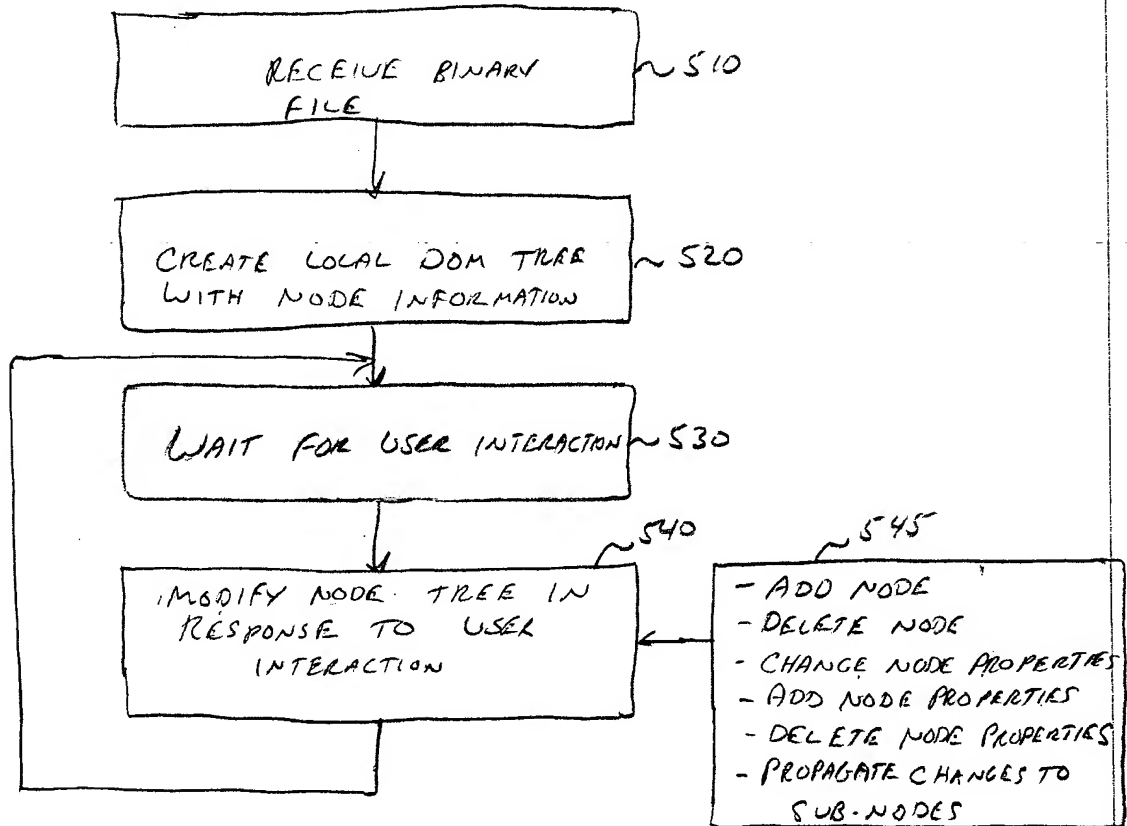 RECEIVE BINARY
FILE
~ 510
CREATE LOCAL DOM TREE
WITH NODE INFORMATION
~ 520
WAIT FOR USER INTERACTION
~ 530
~ 540
MODIFY NODE TREE IN
RESPONSE TO USER
INTERACTION
~ 545
- ADD NODE
- DELETE NODE
- CHANGE NODE PROPERTIES
- ADD NODE PROPERTIES
- DELETE NODE PROPERTIES
- PROPAGATE CHANGES TO
SUB-NODES